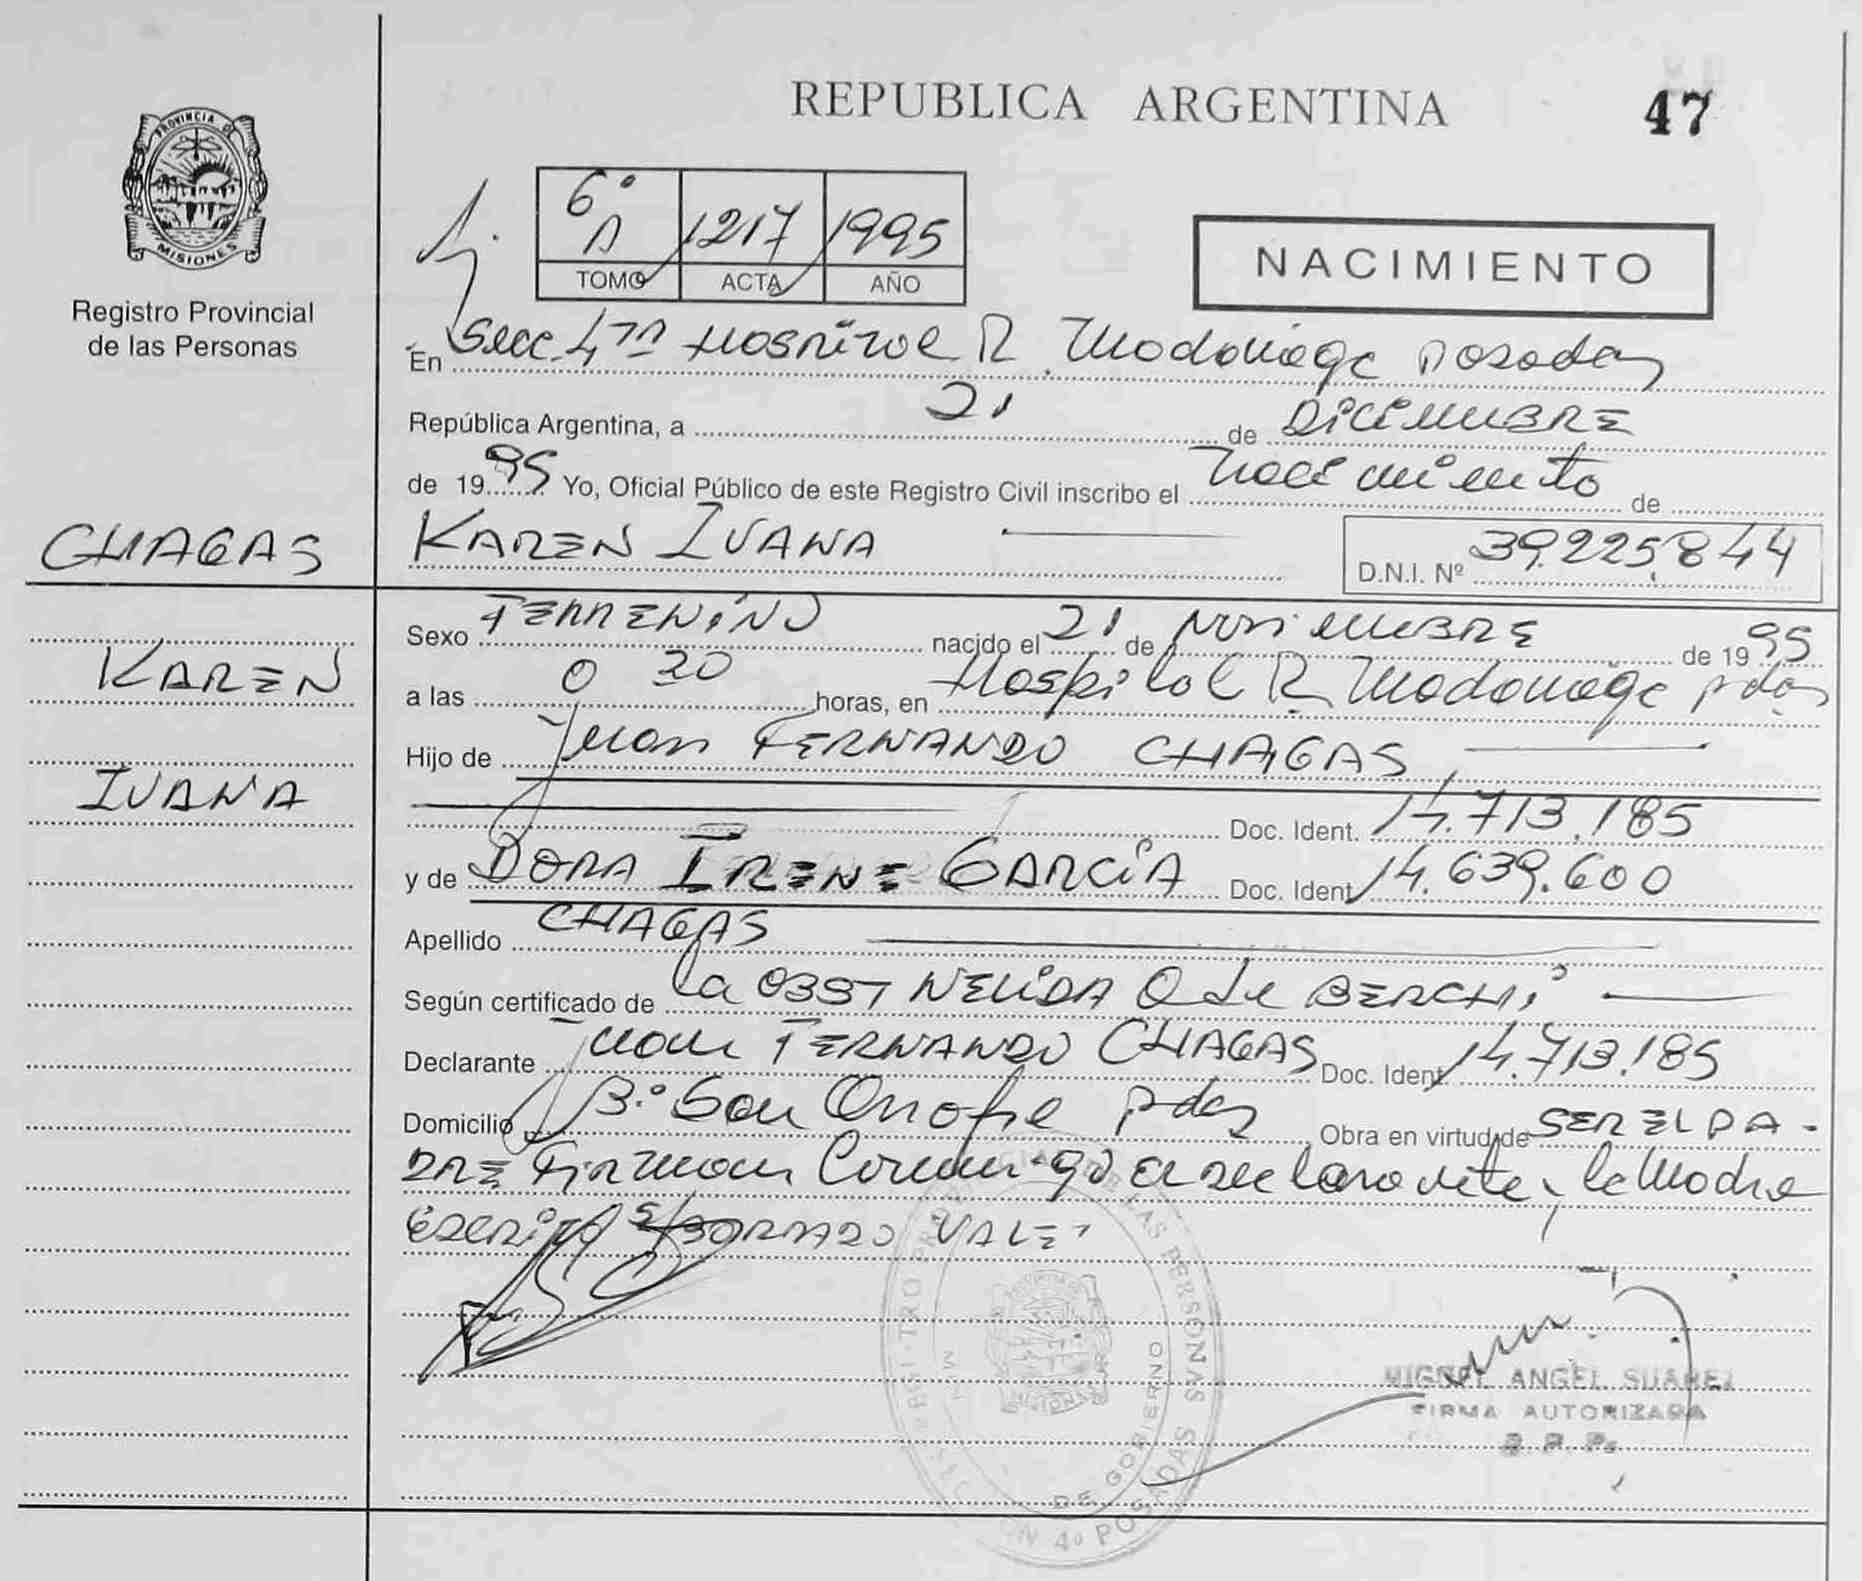 REPUBLICA ARGENTINA
47
PROVINCIA DE
MISIONES
Registro Provincial
de las Personas
6° A 1217 1995
TOMO ACTA AÑO
NACIMIENTO
En Secc. 4ta Hospital R. Madariaga Posadas
República Argentina, a 21 de DICIEMBRE
de 1995 Yo, Oficial Público de este Registro Civil inscribo el Nacimiento de
CHAGAS
KAREN IVANA
D.N.I. Nº 39.225.844
KAREN
IVANA
Sexo FEMENINO nacido el 21 de NOVIEMBRE de 1995
a las 0 30 horas, en Hospital R. Madariaga Pdas
Hijo de Juan FERNANDO CHAGAS,
Doc. Ident. 14.713.185
y de DORA IRENE GARCÍA Doc. Ident. 14.639.600
Apellido CHAGAS
Según certificado de la OBST NELIDA O de BERCHI
Declarante Juan FERNANDO CHAGAS Doc. Ident. 14.713.185
Domicilio B.° San Onofre Pdas Obra en virtud de SER EL PA-
DRE Firman Conmigo el declarante y la Madre
S/BORRADO VALE
MIGUEL ANGEL SUAREZ
FIRMA AUTORIZADA
R. P. P.
DE LAS PERSONAS
DE GOBIERNO
4ª POSADAS